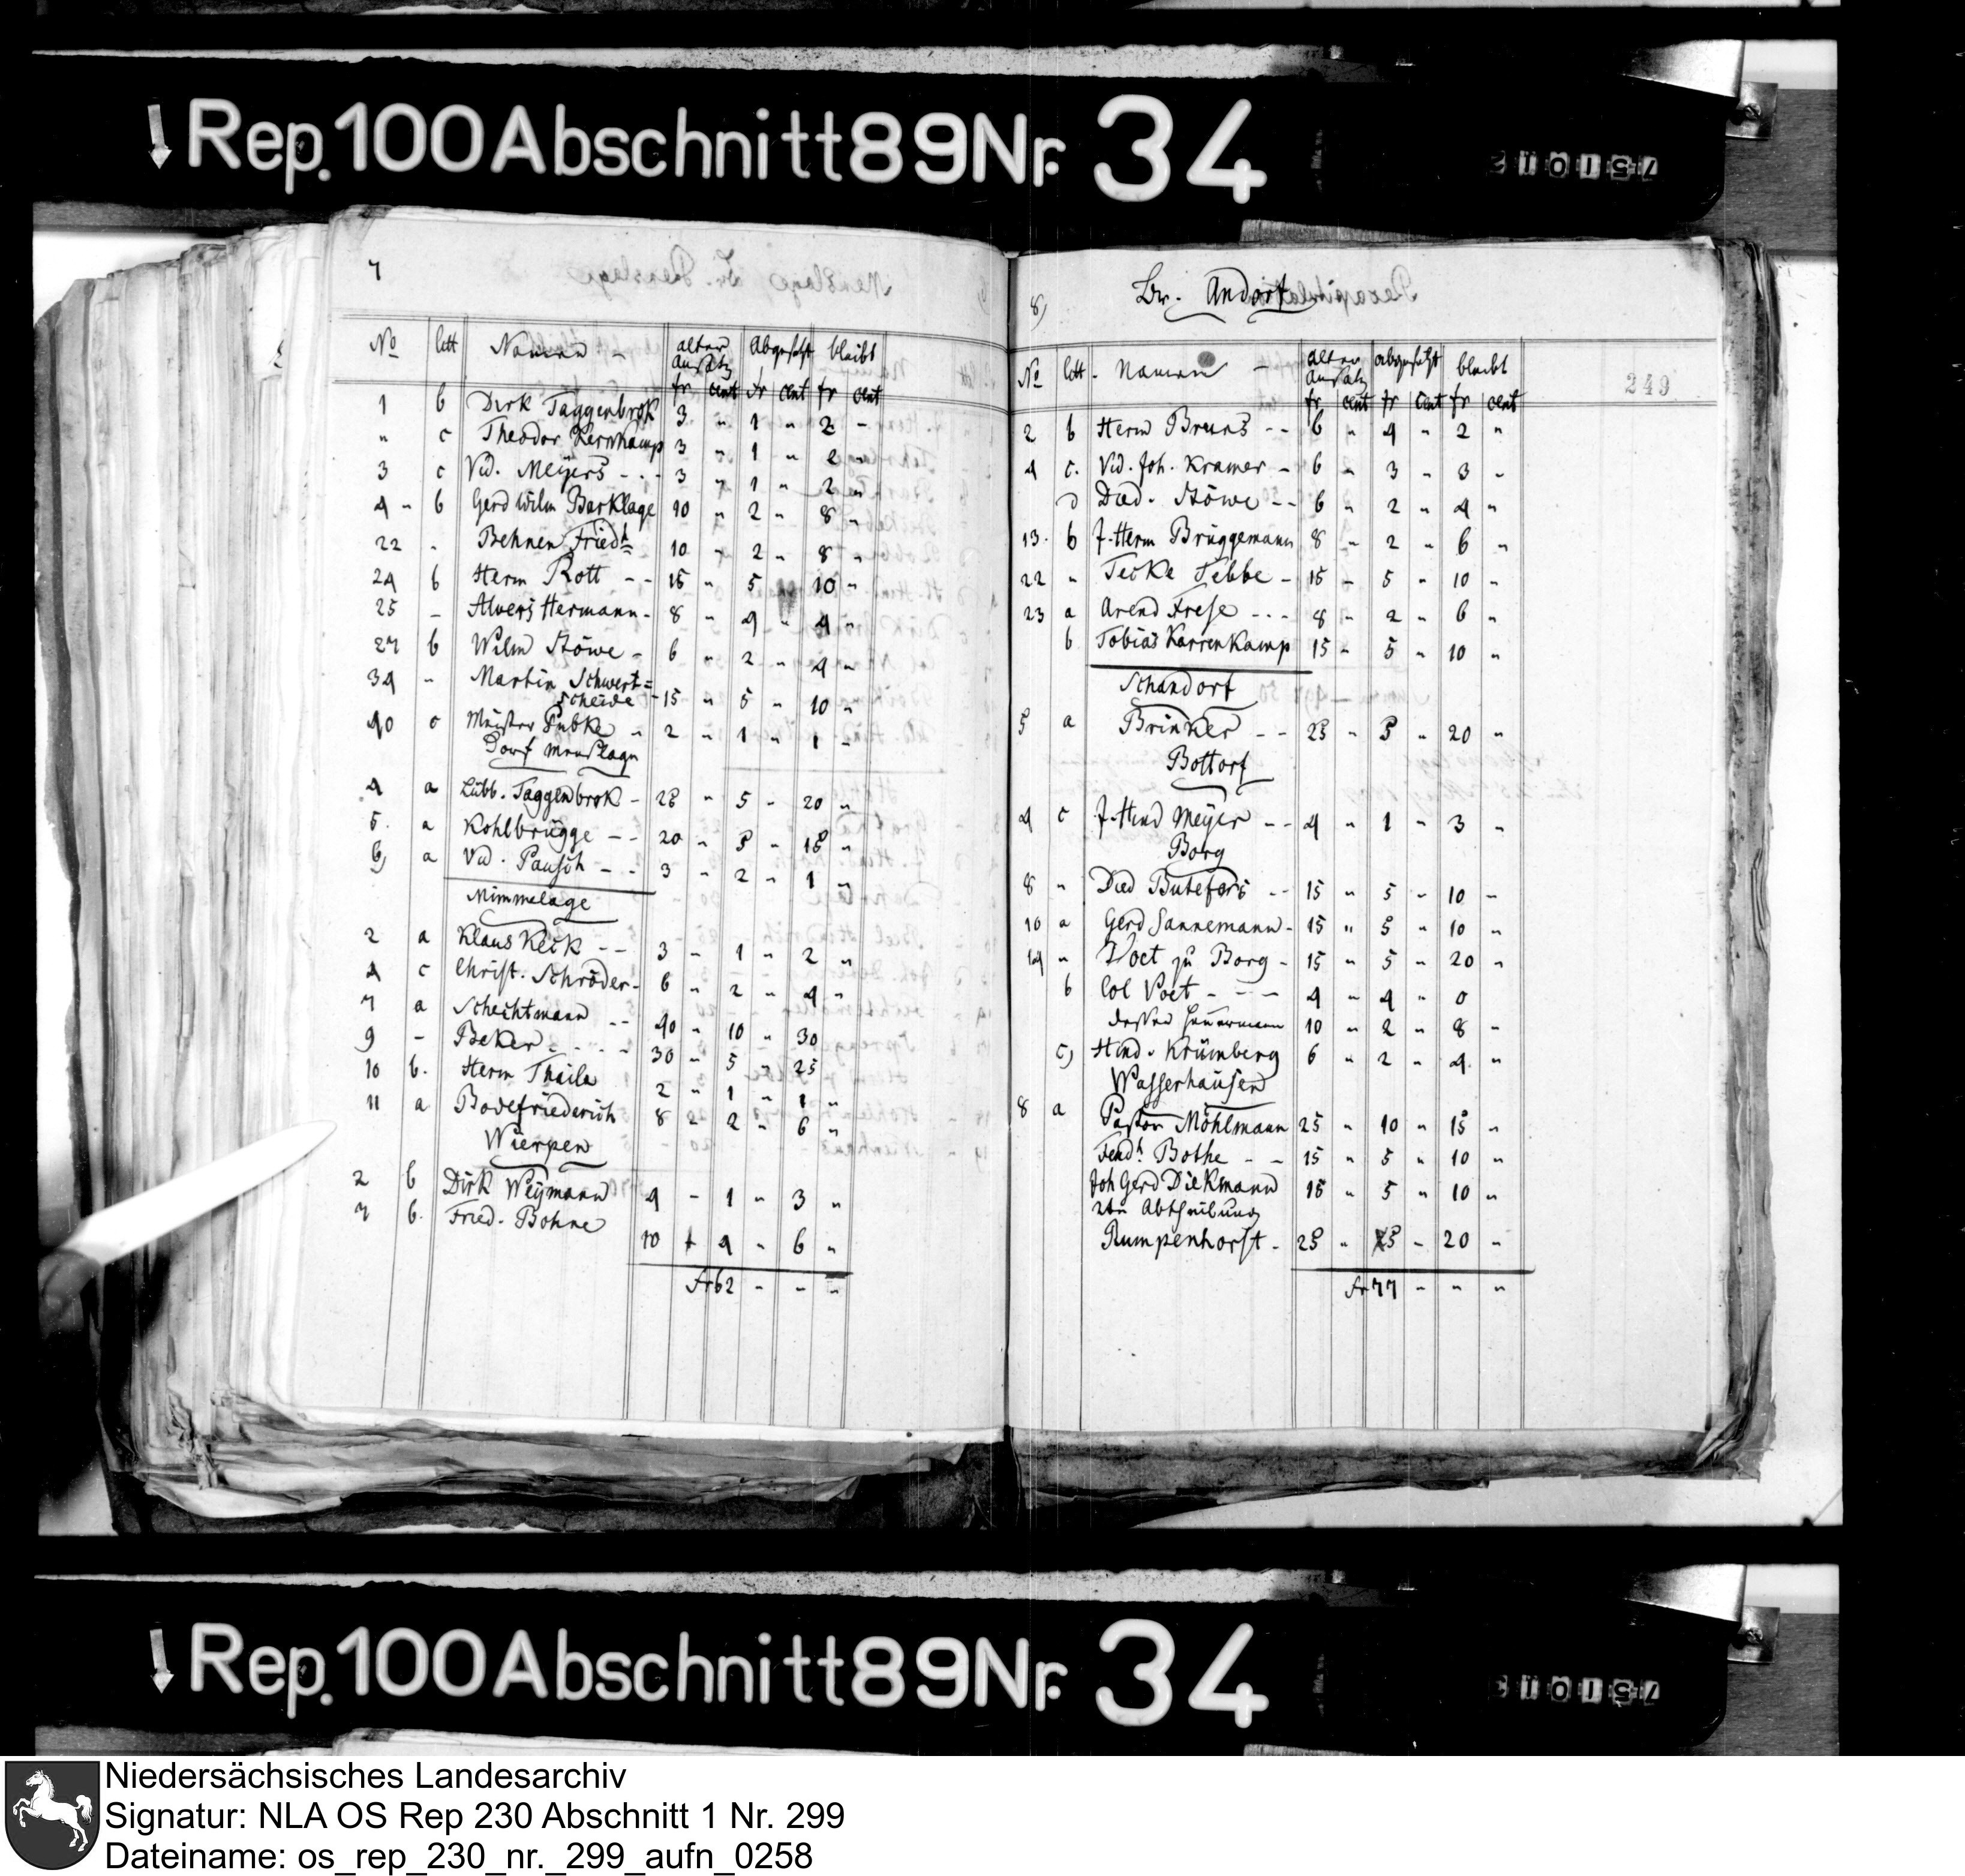 Rep. 100 Abschnitt 89 Nr. 34
7
No litt Namen alter Ansatz abgesetzt bleibt
fr cent fr cent fr cent
1 b Dirk Taggenbrok 3 " 1 " 2 -
" c Theodor Kernkamp 3 " 1 " 2 "
3 c Vid. Meyers - - - 3 " 1 " 2 "
4 - b Gerd Wilm Barklage 10 " 2 " 8 "
22 - Behnen Friedh 10 " 2 " 8 "
24 b Herm Rott - - 15 " 5 " 10 "
25 - Alvers Hermann - 8 " 4 " 4 "
27 b Wilm Stöwe - 6 " 2 " 4 "
34 - Martin Schwert=
scheide - 15 " 5 " 10 "
40 c Meister Pubke - 2 " 1 " 1 "
Dorf Menslage
4 a Lübb. Taggenbrok - 25 " 5 - 20 "
5. a Kohlbrügge - - 20 " 5 " 15 "
6) a Vid. Pausch - - 3 " 2 " 1 "
Mimmelage
2 a Klaus Keck - - 3 - 1 " 2 "
4 c Christ. Schröder - 6 " 2 " 4 "
7 a Schechtmann - - 40 " 10 " 30
9 - Beker - - - - 30 " 5 " 25
10 b. Herm Theile 2 " 1 " 1 "
11 a Bodefriederich 8 " 2 " 6 "
Wierpen
2 b Dirk Weymann 4 - 1 " 3 "
7 b. Fried. Bohne 10 " 4 " 6 "
fr 62 - - "
8) Br. Andorf
249
No litt. Namen - alter Ansatz abgesetzt bleibt
fr cent fr cent fr cent
2 b Herm Bruns - - 6 " 4 " 2 "
4 c. Vid. Joh. Kramer - 6 " 3 " 3 "
d Died. Stöwe - - 6 " 2 " 4 "
13. b J. Herm Brüggemann 8 " 2 " 6 "
22 " Teike Tebbe - 15 - 5 " 10 "
23 a Arend Frese - - - 8 " 2 " 6 "
b Tobias Karrenkamp 15 " 5 " 10 "
Schandorf
5 a Brinker - - 25 " 5 " 20 "
Bottorf
4 c J. Hind Meyer - - 4 " 1 " 3 "
Borg
8 " Died Butefors - - 15 " 5 - 10 -
10 a Gerd Sannemann - 15 " 5 " 10 "
14 " Voet zu Borg - 15 " 5 " 20 "
b Col Voet - - - 4 " 4 " 0
dessen Heuermann 10 " 2 " 8 "
c) Hind. Krümberg 6 " 2 " 4 "
Wasserhausen
8 a Pastor Möhlmann 25 " 10 " 15 "
Ferdh Bothe - - 15 " 5 " 10 "
Joh Gerd Diekmann 15 " 5 " 10 "
2te Abtheilung
Rumpenhorst - 25 " 5 - 20 "
fr 77 - - "
Rep. 100 Abschnitt 89 Nr. 34
Niedersächsisches Landesarchiv
Signatur: NLA OS Rep 230 Abschnitt 1 Nr. 299
Dateiname: os_rep_230_nr._299_aufn_0258